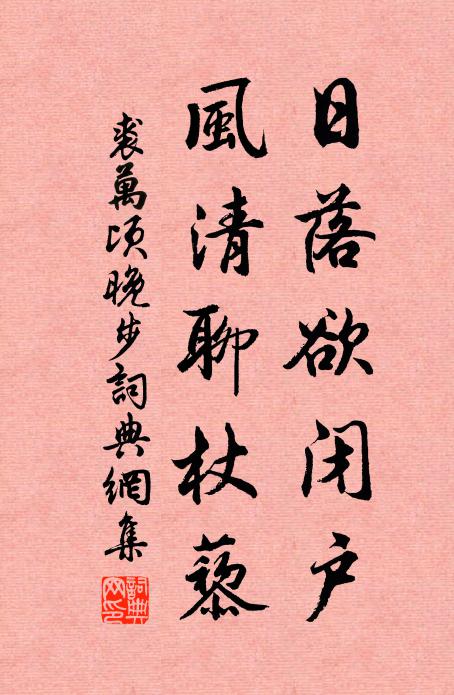 日落欲闭户
風清聊杖藜
裘萬頃晚步詞典網集
詞典網印